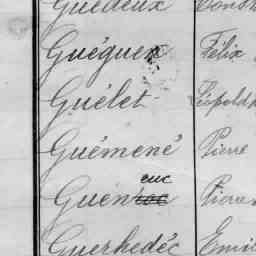 Guédeux Const
Guéguen Félix
Guélet Léopold
Guémené Pierre
euc
Guen Pierre
Guerhedéc Emi